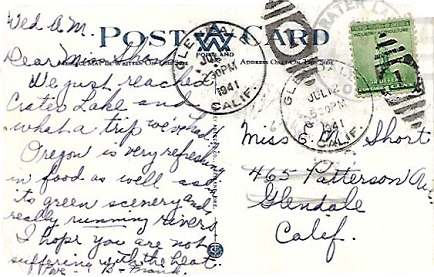 Wed A.M.
Dear Miss Short
We just reached
Crater Lake and
what a trip we've had.
Oregon is very refreshing
in food as well as
its green scenery and
really running rivers.
I hope you are not
suffering with the heat.
B. Frank
POST CARD
PORTLAND
GLENDALE
JUL
30PM
1941
CALIF.
GLENDALE
JUL 12
30PM
1941
CALIF
CRATER LAKE
Miss E. M. Short
465 Patterson Av.
Glendale
Calif.